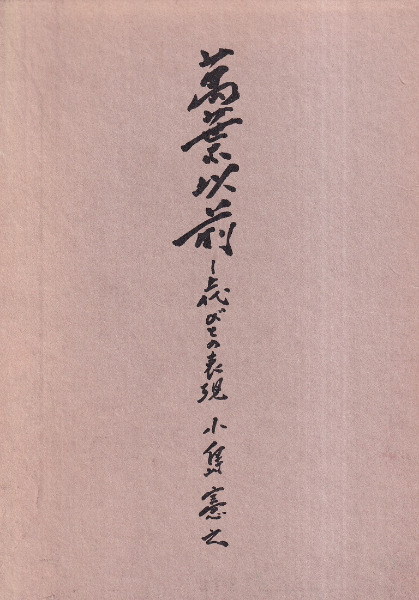 萬葉以前—上代びとの表現 小島憲之